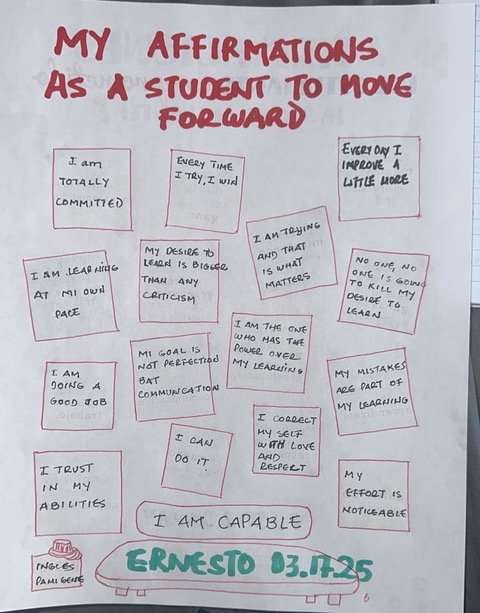 MY AFFIRMATIONS
AS A STUDENT TO MOVE
FORWARD
I am
TOTALLY
COMMITTED
EVERY TIME
I TRY, I WIN
EVERY DAY I
IMPROVE A
LITTLE MORE
I AM LEARNING
AT MI OWN
PACE
MY DESIRE TO
LEARN IS BIGGER
THAN ANY
CRITICISM
I AM TRYING
AND THAT
IS WHAT
MATTERS
NO ONE, NO
ONE IS GOING
TO KILL MY
DESIRE TO
LEARN
I AM
DOING A
GOOD JOB
MI GOAL IS
NOT PERFECTION
BAT
COMMUNICATION
I AM THE ONE
WHO HAS THE
POWER OVER
MY LEARNING
MY MISTAKES
ARE PART OF
MY LEARNING
I TRUST
IN MY
ABILITIES
I CAN
DO IT
I CORRECT
MY SELF
WITH LOVE
AND
RESPERT
MY
EFFORT IS
NOTICEABLE
I AM CAPABLE
INGLES
PA MI GENTE
ERNESTO 03.17.25